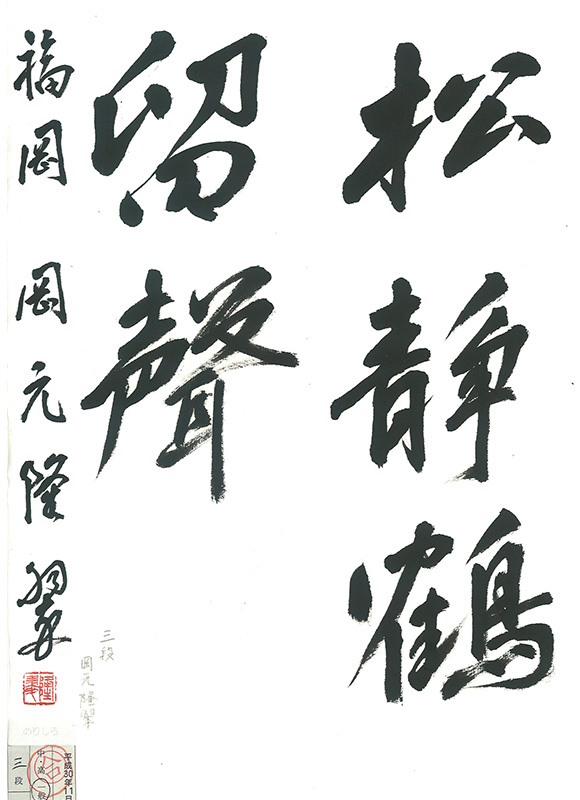 松静鶴
留聲
福岡 岡元隆翠
三段
岡元隆翠
のりしろ
平成30年11
中・高・一般
三段